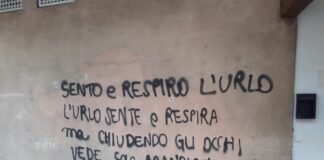 SENTO e RESPIRO L'URLO
L'URLO SENTE e RESPIRA
ma CHIUDENDO GLI OCCHI
VEDE